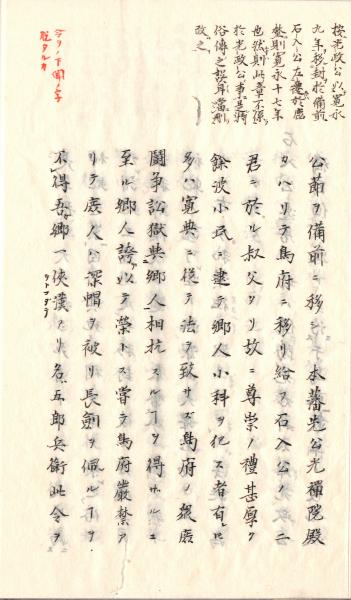 按光政公以寛永
九年移封於備前
石入公左遷於鹿
野則寛永十七年
也然則此章不係
於光政公事是時
俗傳之誤耳當刪
改之
今リノ下聞ノ字
脱タルカ
公節ヲ備前ニ移シ本藩先公光禪院殿
カハリテ鳥府ニ移リ給フ石入公ノ二
君ニ於ル叔父タリ故ニ尊崇ノ禮甚厚ク
餘波小民ニ逮テ郷人小科ヲ犯ス者有レ𪜈
多ハ寛典ニ從テ法ヲ致サズ鳥府ノ裰褐
鬪争訟獄與郷人相抗スルヿヲ得サルニ
至ル郷人誇以テ榮トス嘗テ鳥府嚴禁ア
リテ庶人ハ深帽ヲ被リ長劍ヲ佩ルヿヲ
不得吾郷一侠漢アリ名五郎兵衛此令ヲ
ヲトコダテ